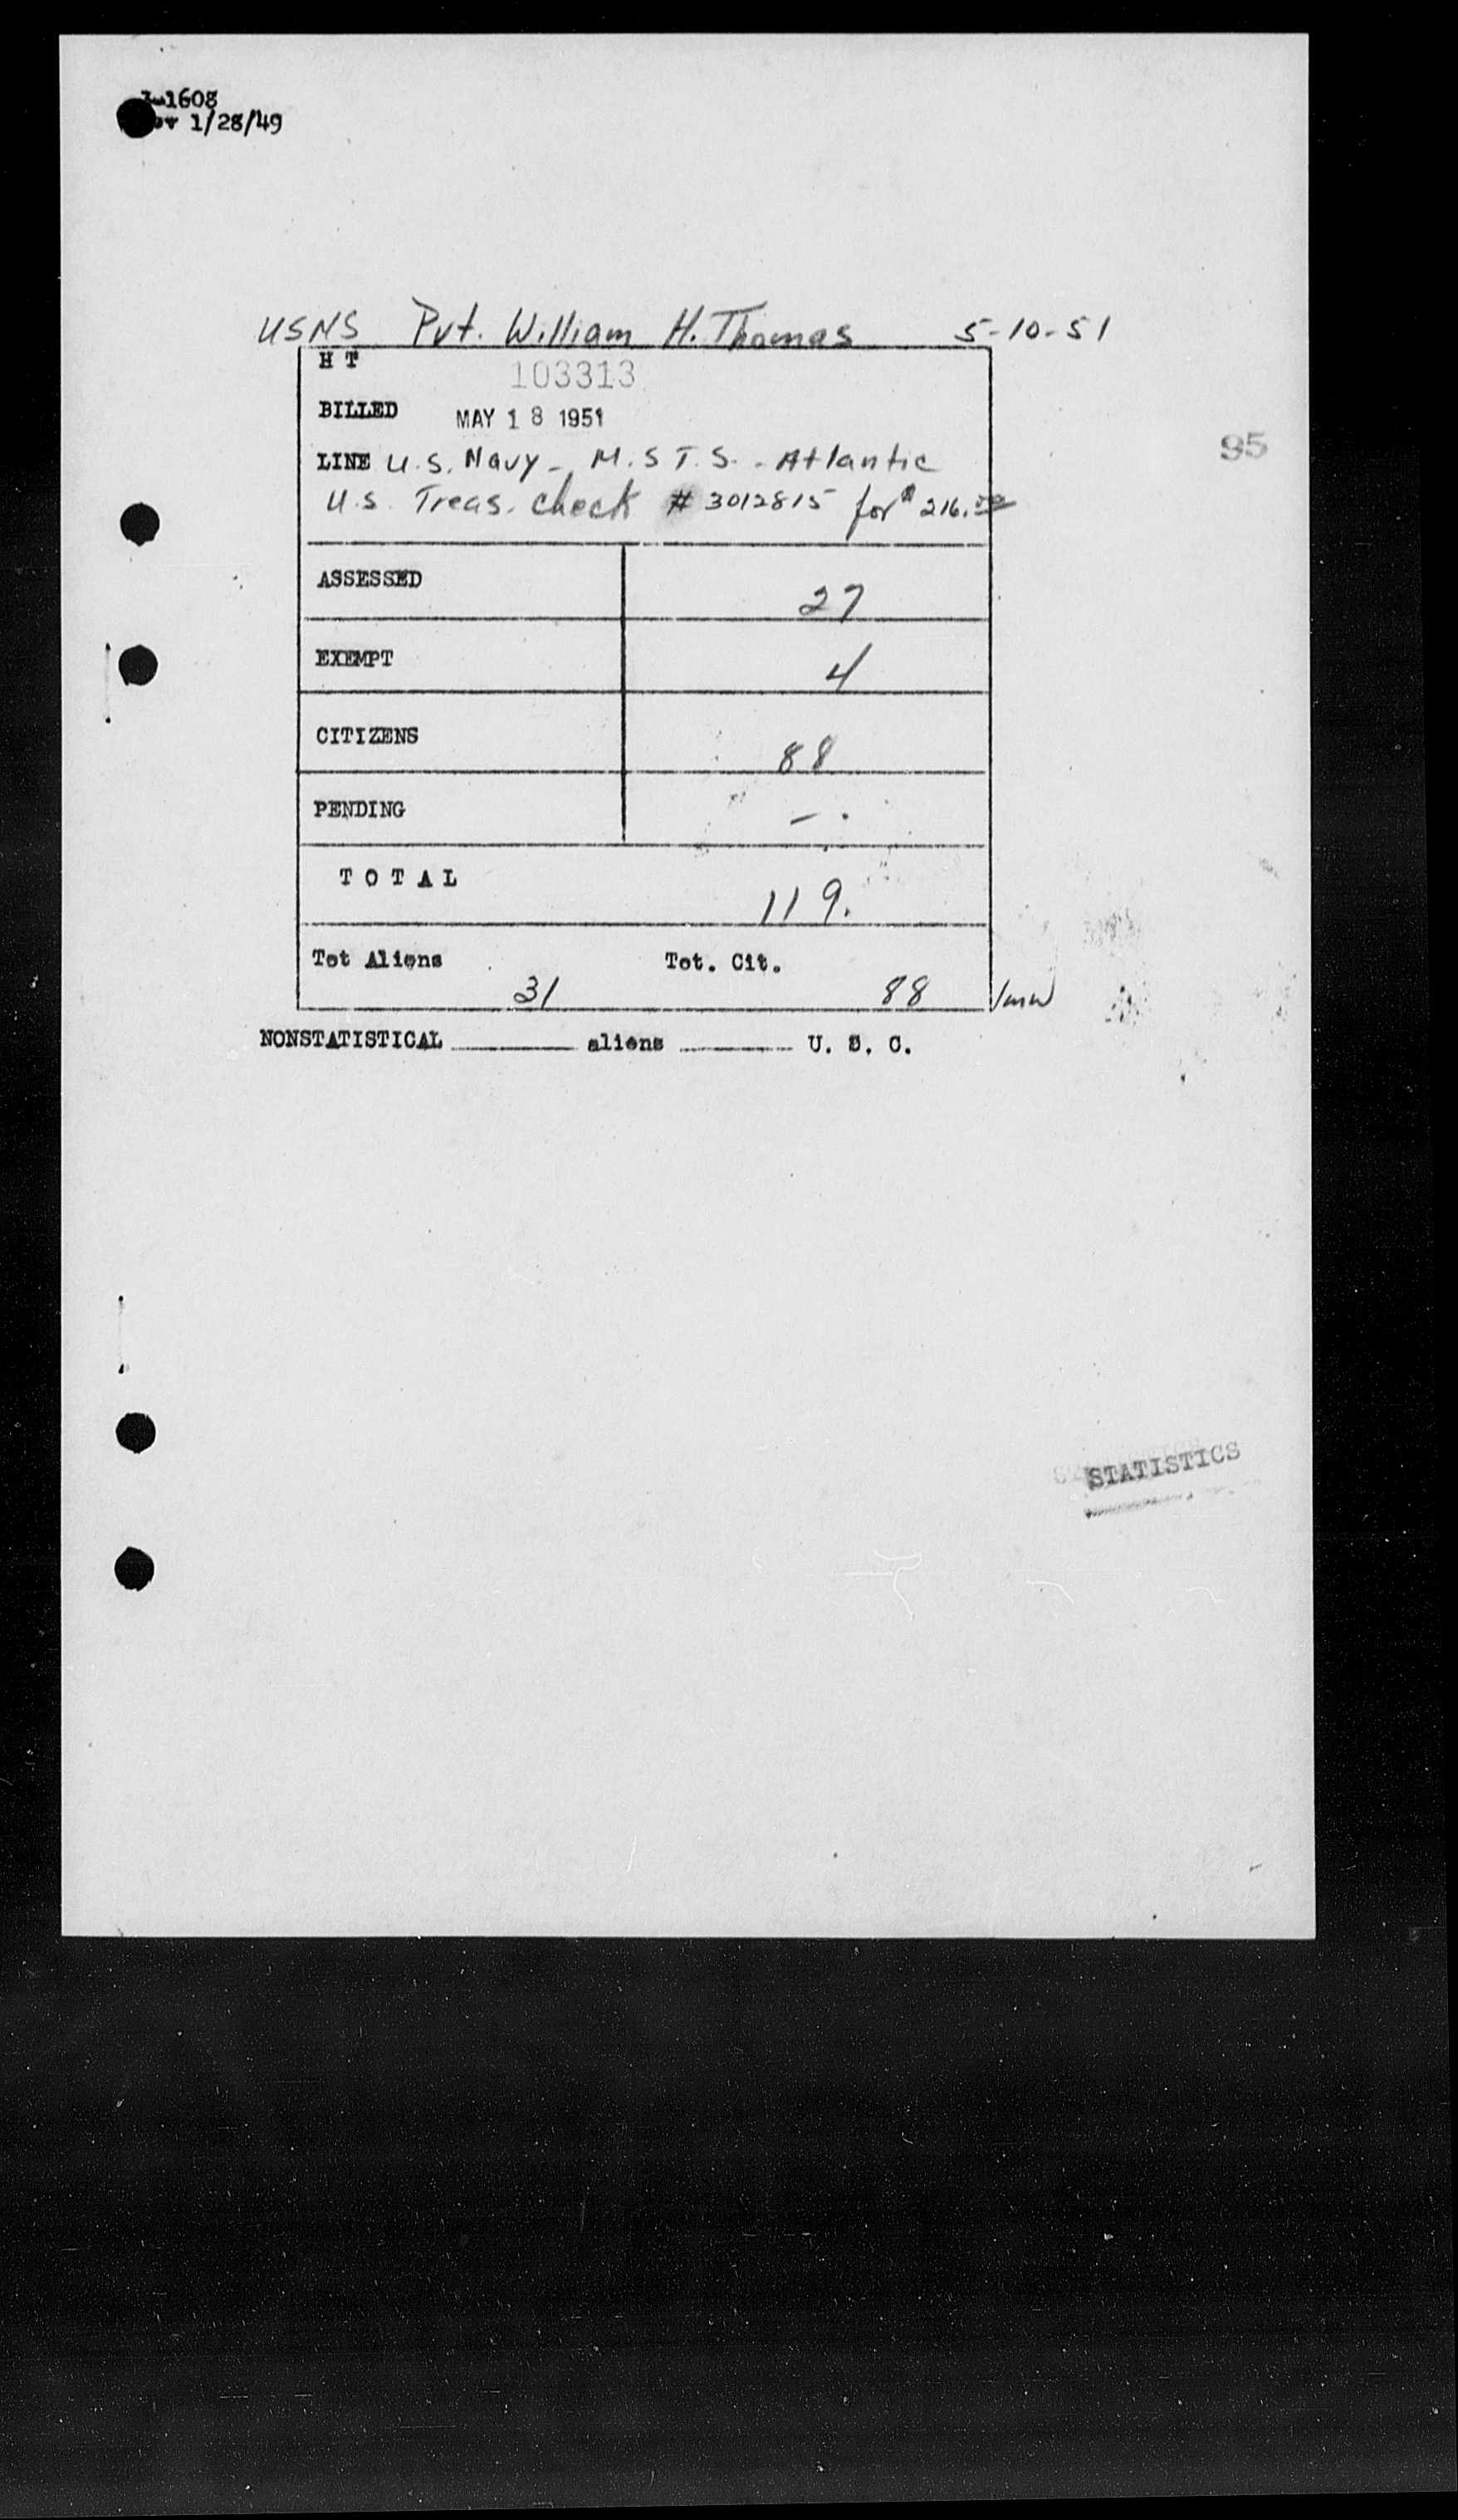 1608
1/28/49
USNS Pvt. William H. Thomas 5-10-51
H T
103313
BILLED MAY 18 1951
95
LINE U.S. Navy - M.S.T.S. - Atlantic
U.S. Treas. Check # 3012815 for $216.00
ASSESSED 27
EXEMPT 4
CITIZENS 88
PENDING -
TOTAL 119.
Tot Aliens 31 Tot. Cit. 88
NONSTATISTICAL aliens U. S. C.
STATISTICS